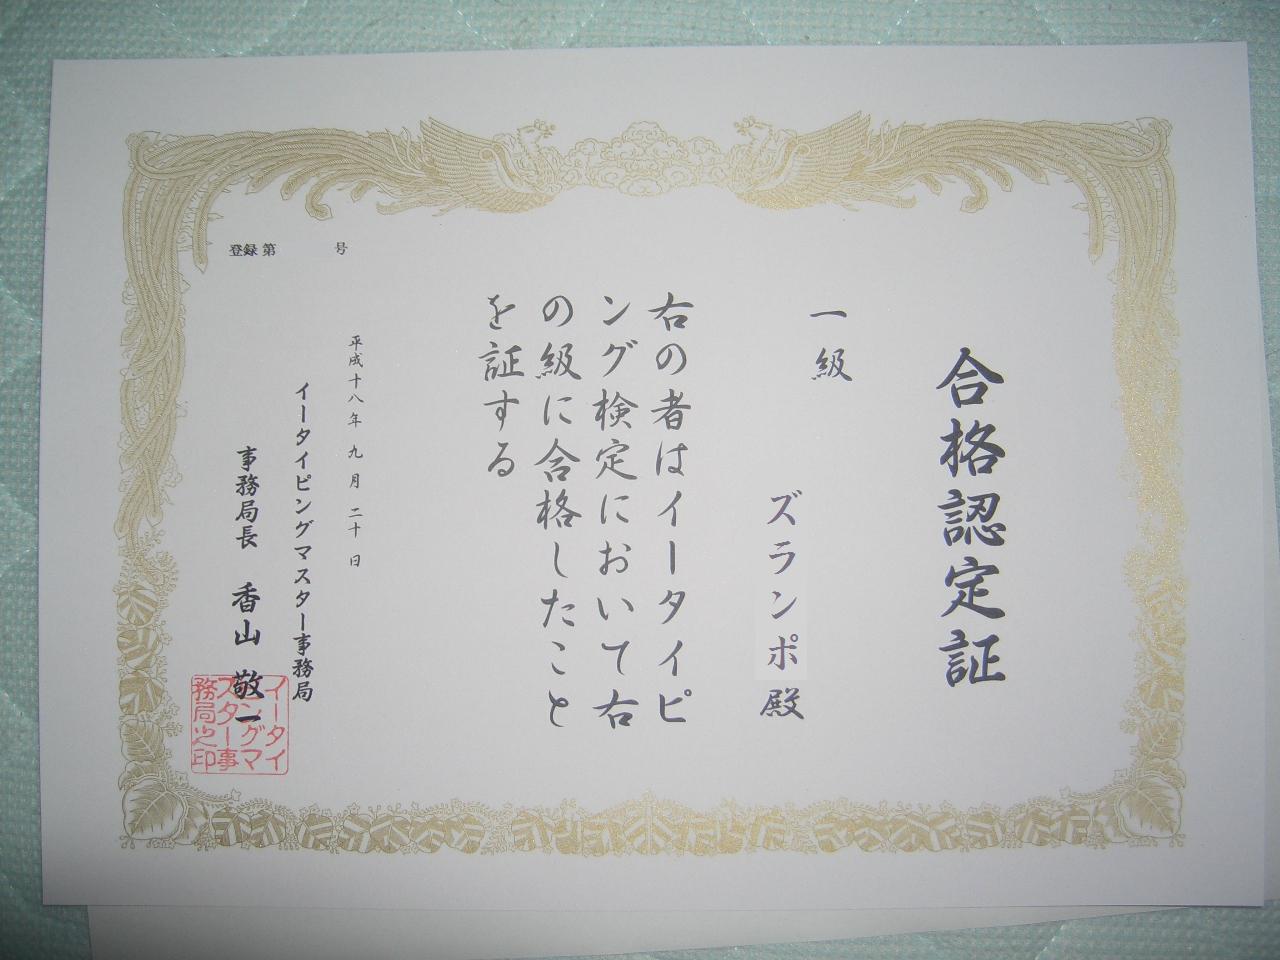 合格認定証
一級
ズランポ殿
右の者はイータイピ
ング検定において右
の級に合格したこと
を証する
平成十八年 九月 二十日
イータイピングマスター事務局
事務局長 香山 敬一
登録 第 号
イータイ
ピングマ
スター事
務局之印